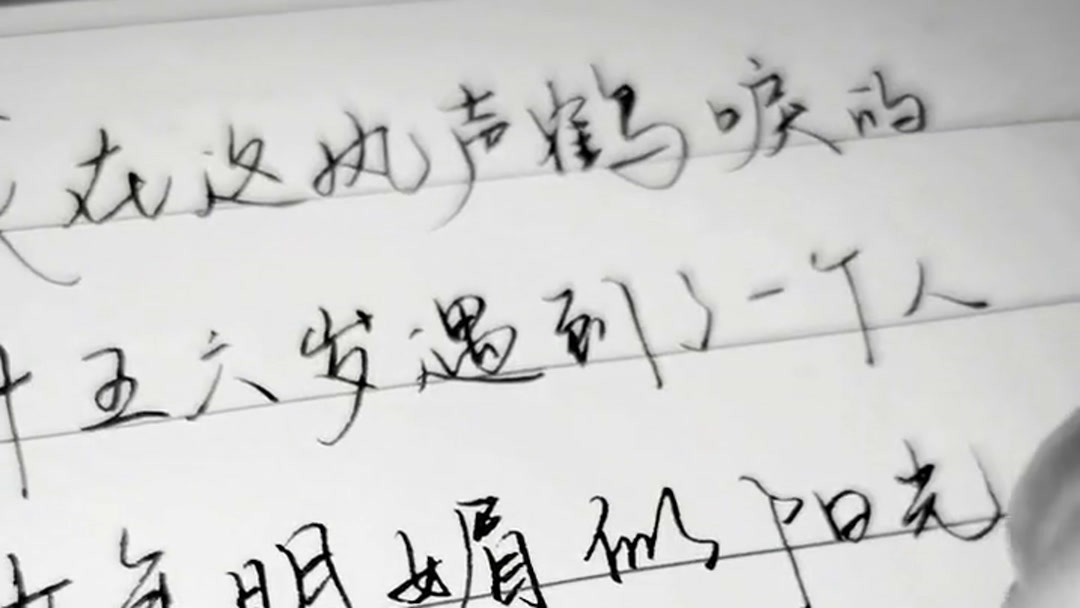 在这风声鹤唳的
十五六岁遇到了一个人
年明媚似阳光